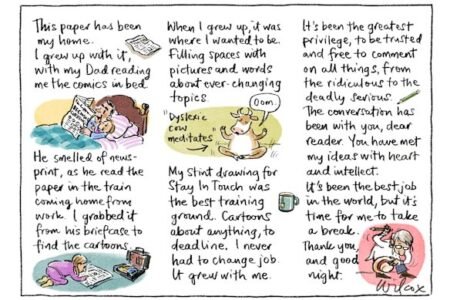 This paper has been
my home.
I grew up with it,
with my Dad reading
me the comics in bed
He smelled of news-
print, as he read the
paper in the train
coming home from
work. I grabbed it
from his briefcase to
find the cartoons.
When I grew up, it was
where I wanted to be.
Filling spaces with
pictures and words
about ever-changing
topics.
Dyslexic
cow
meditates
Oom.
My stint drawing for
Stay In Touch was
the best training
ground. Cartoons
about anything, to
deadline. I never
had to change job.
It grew with me.
It's been the greatest
privilege, to be trusted
and free to comment
on all things, from
the ridiculous to the
deadly serious.
The conversation has
been with you, dear
reader. You have met
my ideas with heart
and intellect.
It's been the best job
in the world, but it's
time for me to take
a break.
Thank you,
and good
night.
Wilcox